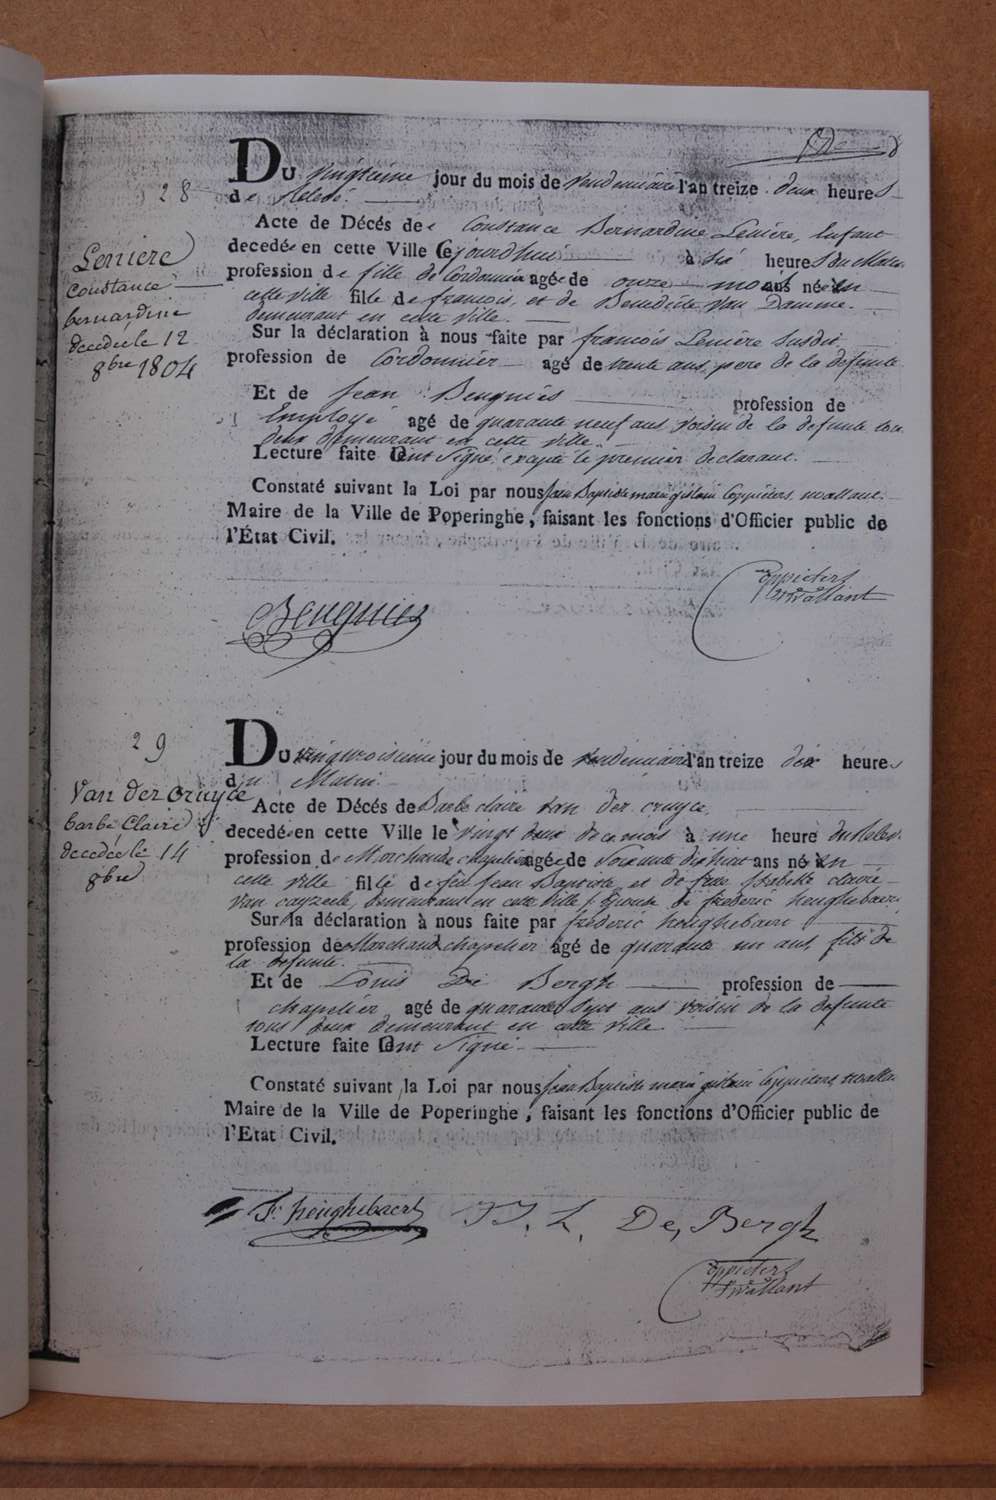 28
Leniere
constance
bernardine
decedée le 12
8bre 1804
Du vingtieme jour du mois de vendemiaire l'an treize deux heures
de Relevé.
Acte de Décés de Constance Bernardine Leniere, Enfant
decedée en cette Ville Cejourdhui à six heures du Matin
profession de fille de Cordonnier agée de onze mois née en
cette ville fille de francois, et de Benedicte Van Damme.
demeurant en cette ville.
Sur la déclaration à nous faite par francois Leniere Susdit
profession de Cordonnier agé de trente ans pere de la defunte
Et de Jean Beugnies profession de
Employé agé de quarante neuf ans voisin de la defunte tous
deux demeurant en cette ville
Lecture faite ont Signé, excepté le premier declarant.
Constaté suivant la Loi par nous Jean Baptiste marie gislain Coppieters wallant
Maire de la Ville de Poperinghe, faisant les fonctions d'Officier public de
l'État Civil.
Beugnies
Coppieters
wallant
29
Van der cruyce
barbe Claire
decedée le 14
8bre
Du vingtroisieme jour du mois de vendemiaire l'an treize dix heures
du Matin
Acte de Décés de Barbe claire van der cruyce,
decedée en cette Ville le vingt deux de ce mois à une heure du Relevé
profession de Marchande chapeliere agée de Soixante dixhuit ans née en
cette ville fille de feu Jean Baptiste et de feue Isabelle claire
van cayzeele, demeurant en cette ville, Epouse de frederic heughebaert
Sur la déclaration à nous faite par frederic heughebaert
profession de Marchand chapelier agé de quarante un ans, fils de
la defunte.
Et de Louis De Bergh profession de
chapelier agé de quarante Sept ans voisin de la defunte
tous deux demeurant en cette ville
Lecture faite ont Signé
Constaté suivant la Loi par nous Jean Baptiste marie gislain Coppieters walla
Maire de la Ville de Poperinghe, faisant les fonctions d'Officier public de
l'Etat Civil.
F. heughebaert J. L. De Bergh
Coppieters
wallant